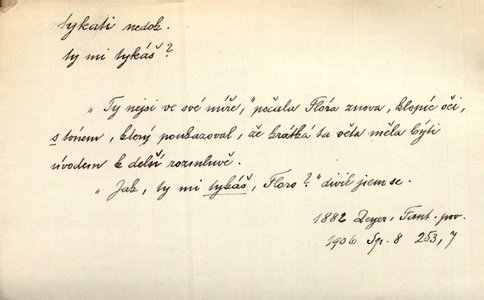 tykati nedok.
ty mi tykáš?
„Ty nejsi ve své míře,“ počala Flóra znova, klopíc oči,
s tónem, který poukazoval, že krátká ta věta měla býti
úvodem k delší rozmluvě.
„Jak, ty mi tykáš, Floro?“ divil jsem se.
1882 Zeyer, Fant. pov.
1906 Sp. 8 253, 7